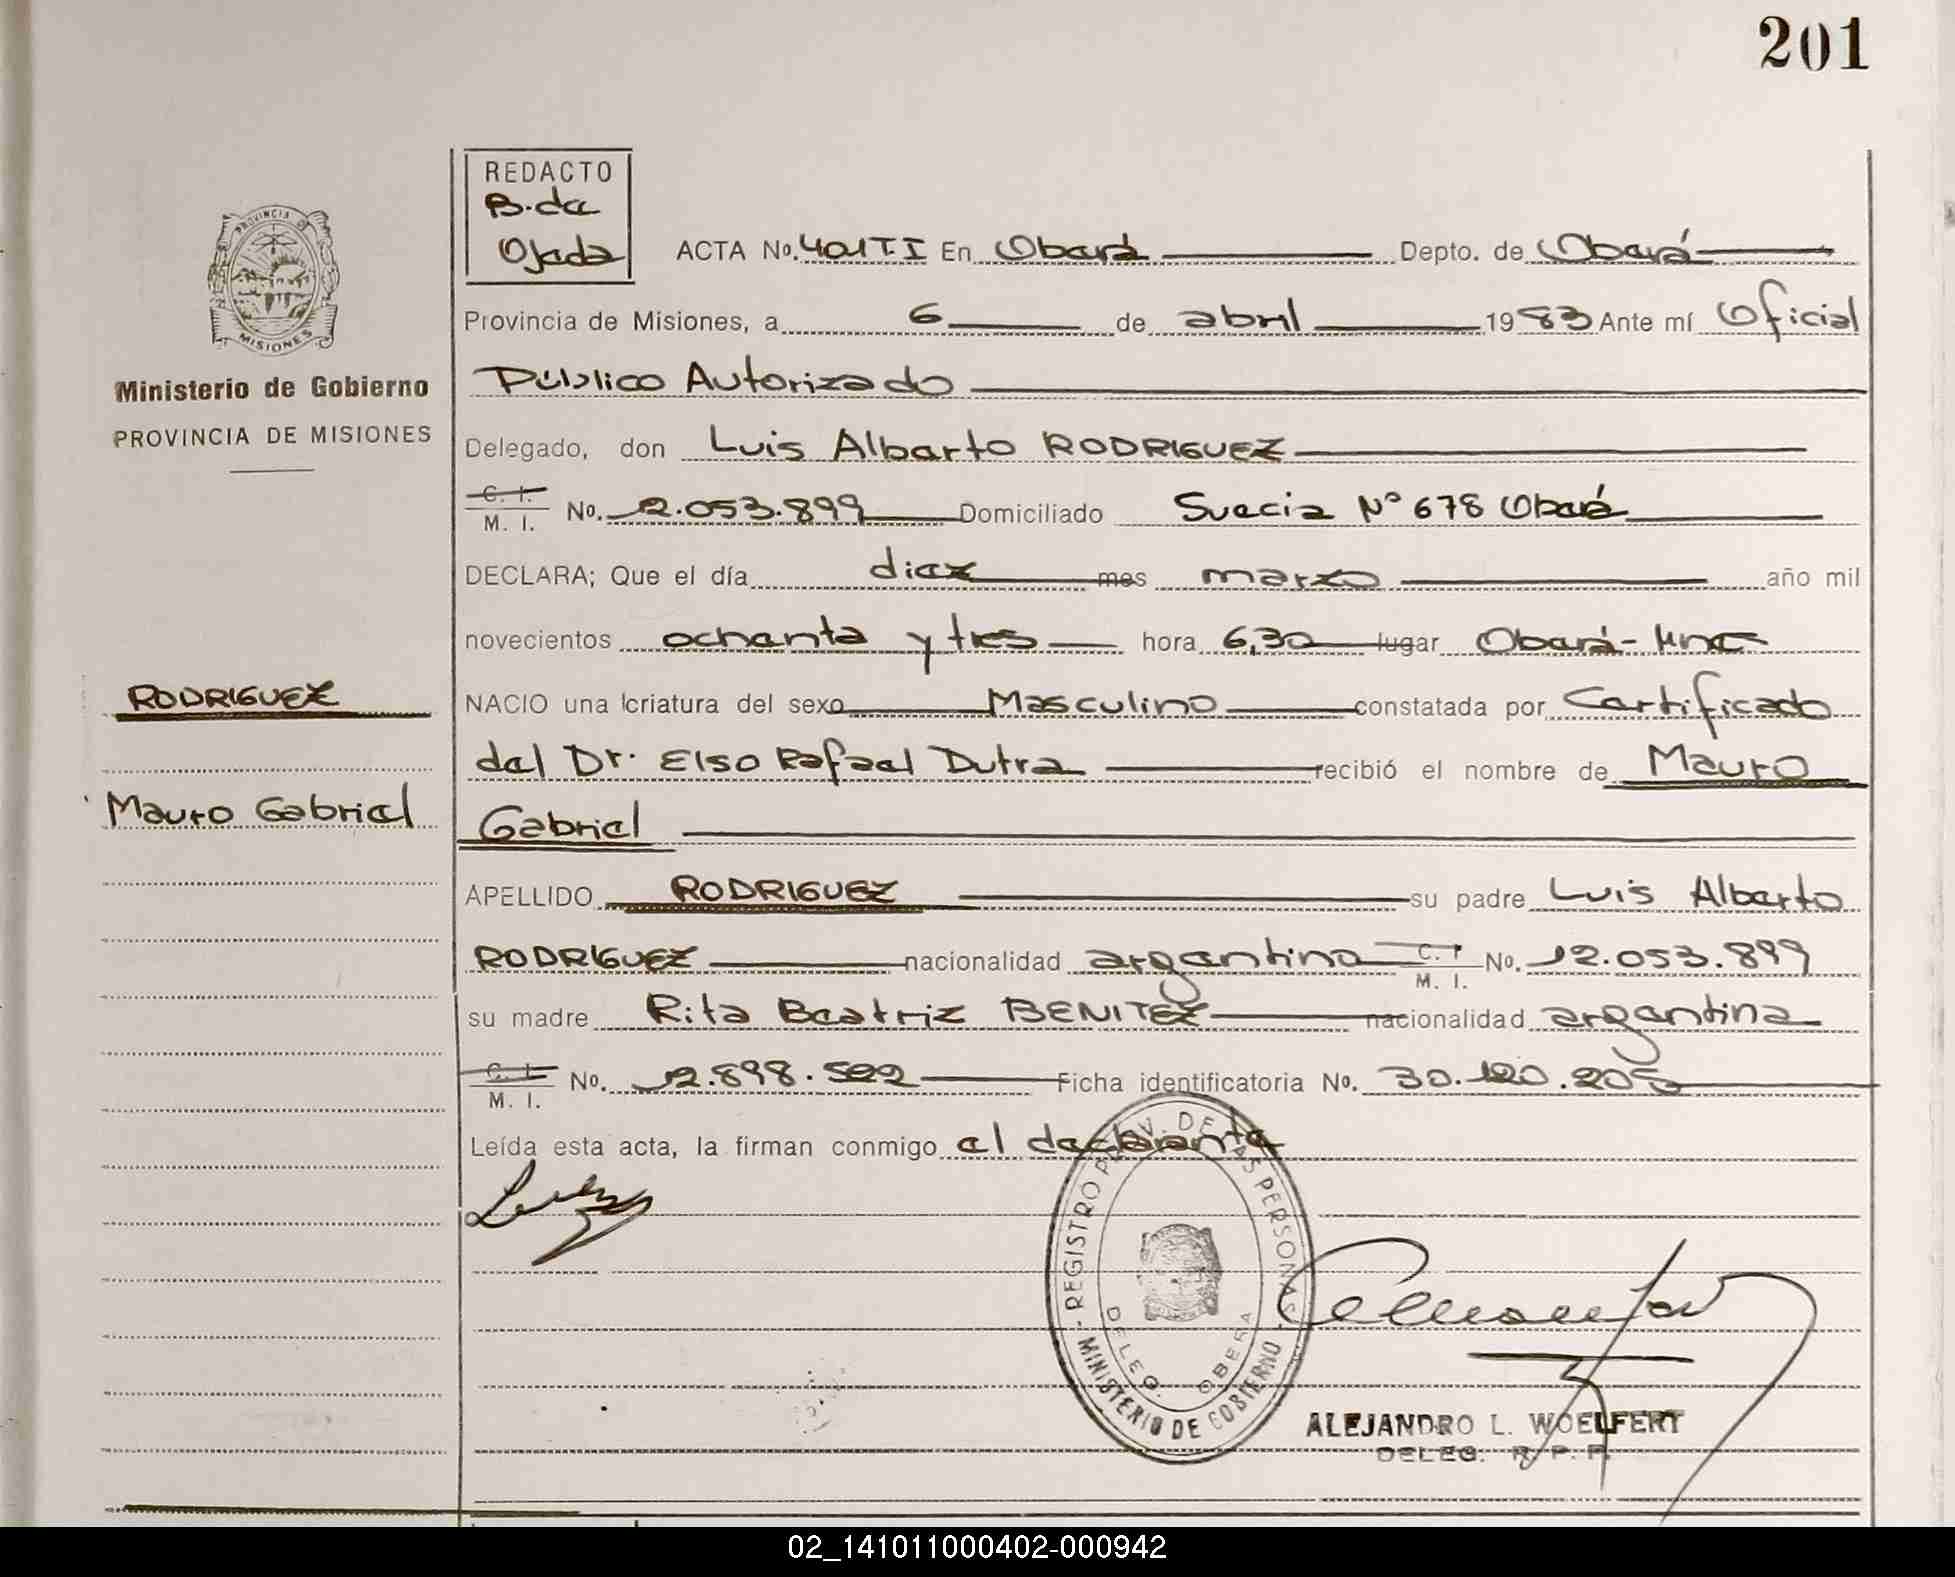 201
REDACTO
B. de
Ojeda
ACTA No. 401 T. I En Oberá Depto. de Oberá
Provincia de Misiones, a 6 de abril 1983 Ante mí Oficial
Público Autorizado
Ministerio de Gobierno
PROVINCIA DE MISIONES
Delegado, don Luis Alberto RODRIGUEZ
C. I.
M. I. No. 12.053.899 Domiciliado Suecia Nº 678 Oberá
DECLARA; Que el día diez mes marzo año mil
novecientos ochenta y tres hora 6,30 lugar Oberá - Mnes
RODRIGUEZ
NACIO una criatura del sexo Masculino constatada por Certificado
del Dr. Elso Rafael Dutra recibió el nombre de Mauro
Mauro Gabriel
Gabriel
APELLIDO RODRIGUEZ su padre Luis Alberto
RODRIGUEZ nacionalidad argentina C. I.
M. I. No. 12.053.899
su madre Rita Beatriz BENITEZ nacionalidad argentina
C. I.
M. I. No. 12.898.522 Ficha identificatoria No. 30.120.205
Leída esta acta, la firman conmigo el declarante
REGISTRO PROV. DE LAS PERSONAS
DELEG. OBERA
MINISTERIO DE GOBIERNO
ALEJANDRO L. WOELFERT
DELEG. R. P. P.
PROVINCIA DE
MISIONES
02_141011000402-000942